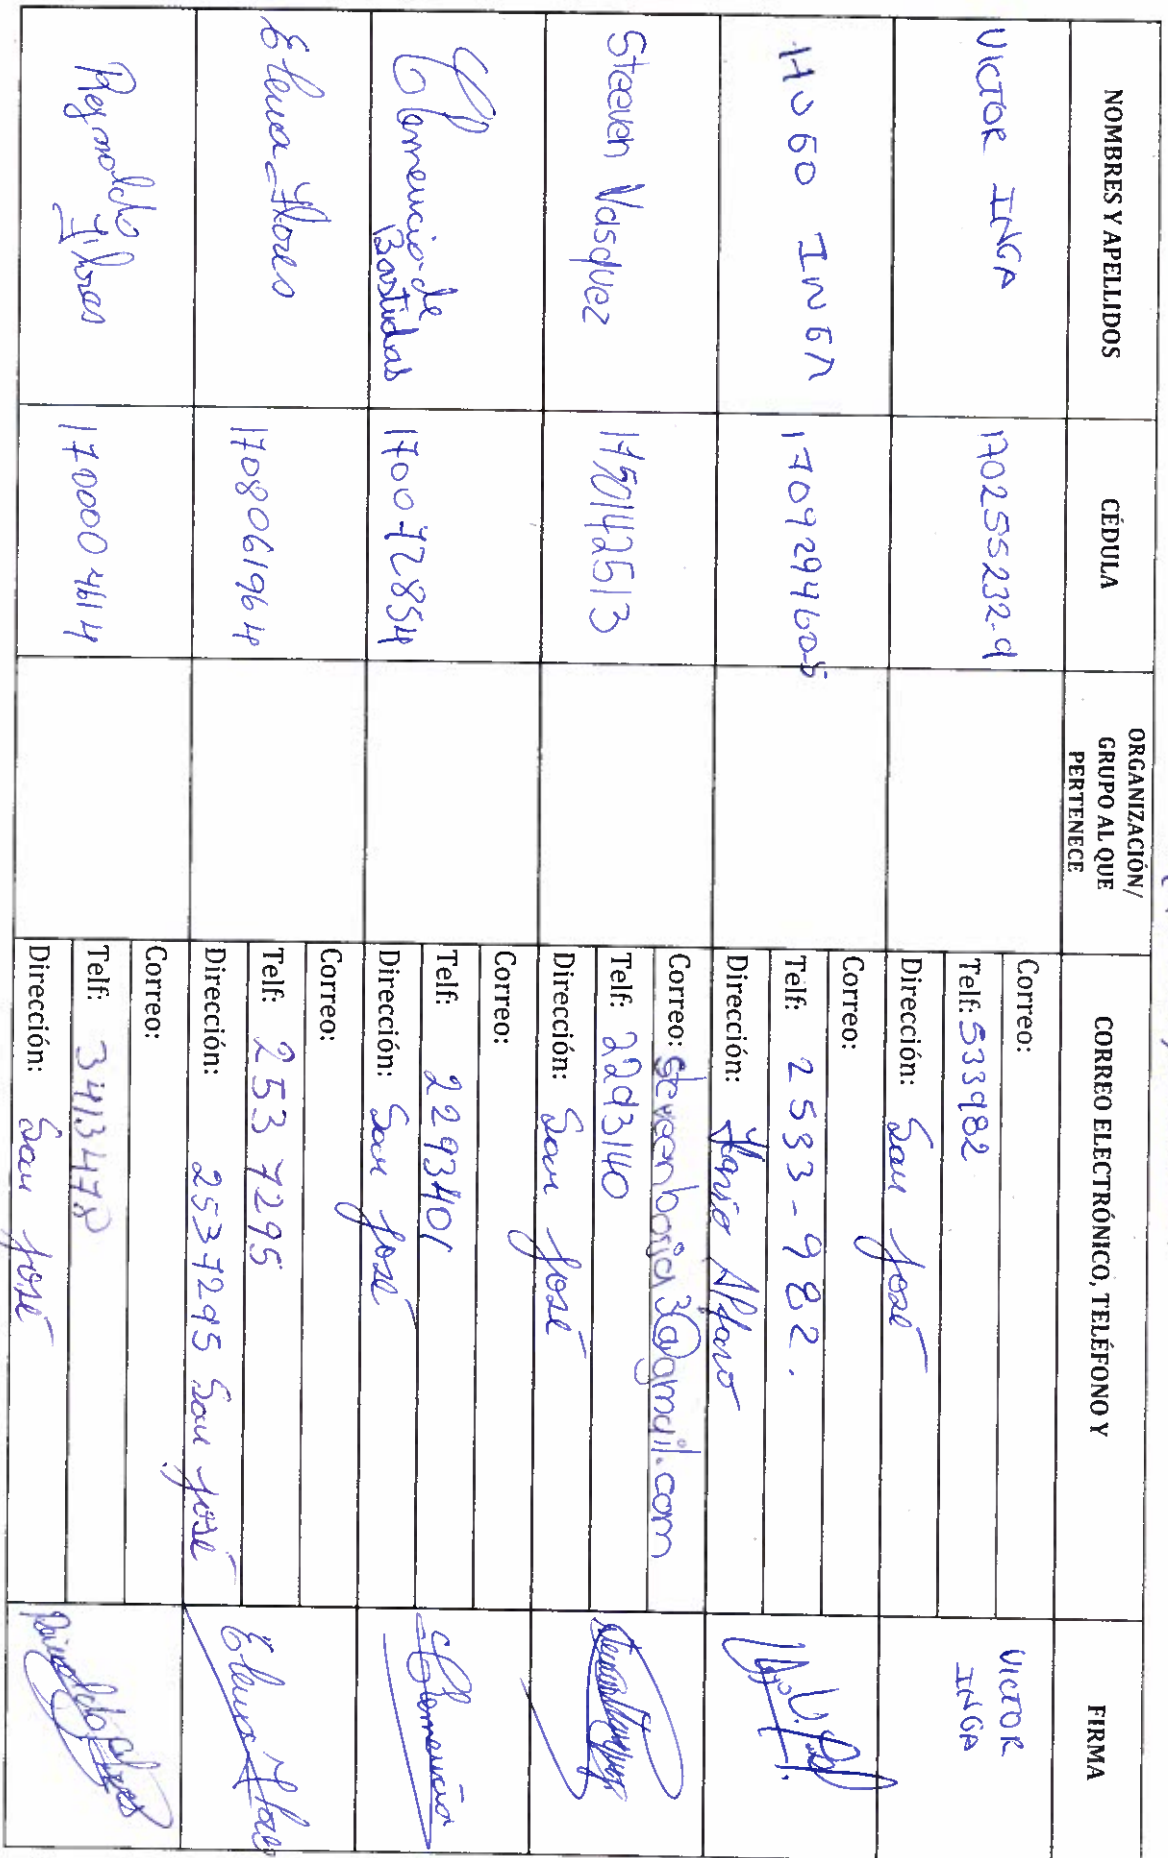 NOMBRES Y APELLIDOS
CÉDULA
ORGANIZACIÓN/
GRUPO AL QUE
PERTENECE
CORREO ELECTRÓNICO, TELÉFONO Y
FIRMA
VICTOR INGA
170255232-9
Correo:
Telf: 533982
Dirección: San José
VICTOR
INGA
HUGO INGA
170929460-5
Correo:
Telf: 2533-982.
Dirección: Alfaro
Steeven Vasquez
1750142513
Correo: steveenborja3@gmail.com
Telf: 2293140
Dirección: San José
Clemencia de
Bastidas
170072854
Correo:
Telf: 2293401
Dirección: San José
Clemencia
Elena Flores
1708061964
Correo:
Telf: 2537295
Dirección: 2537295 San José
Elena Flores
Flores
1700004614
Correo:
Telf: 3413478
Dirección: San José